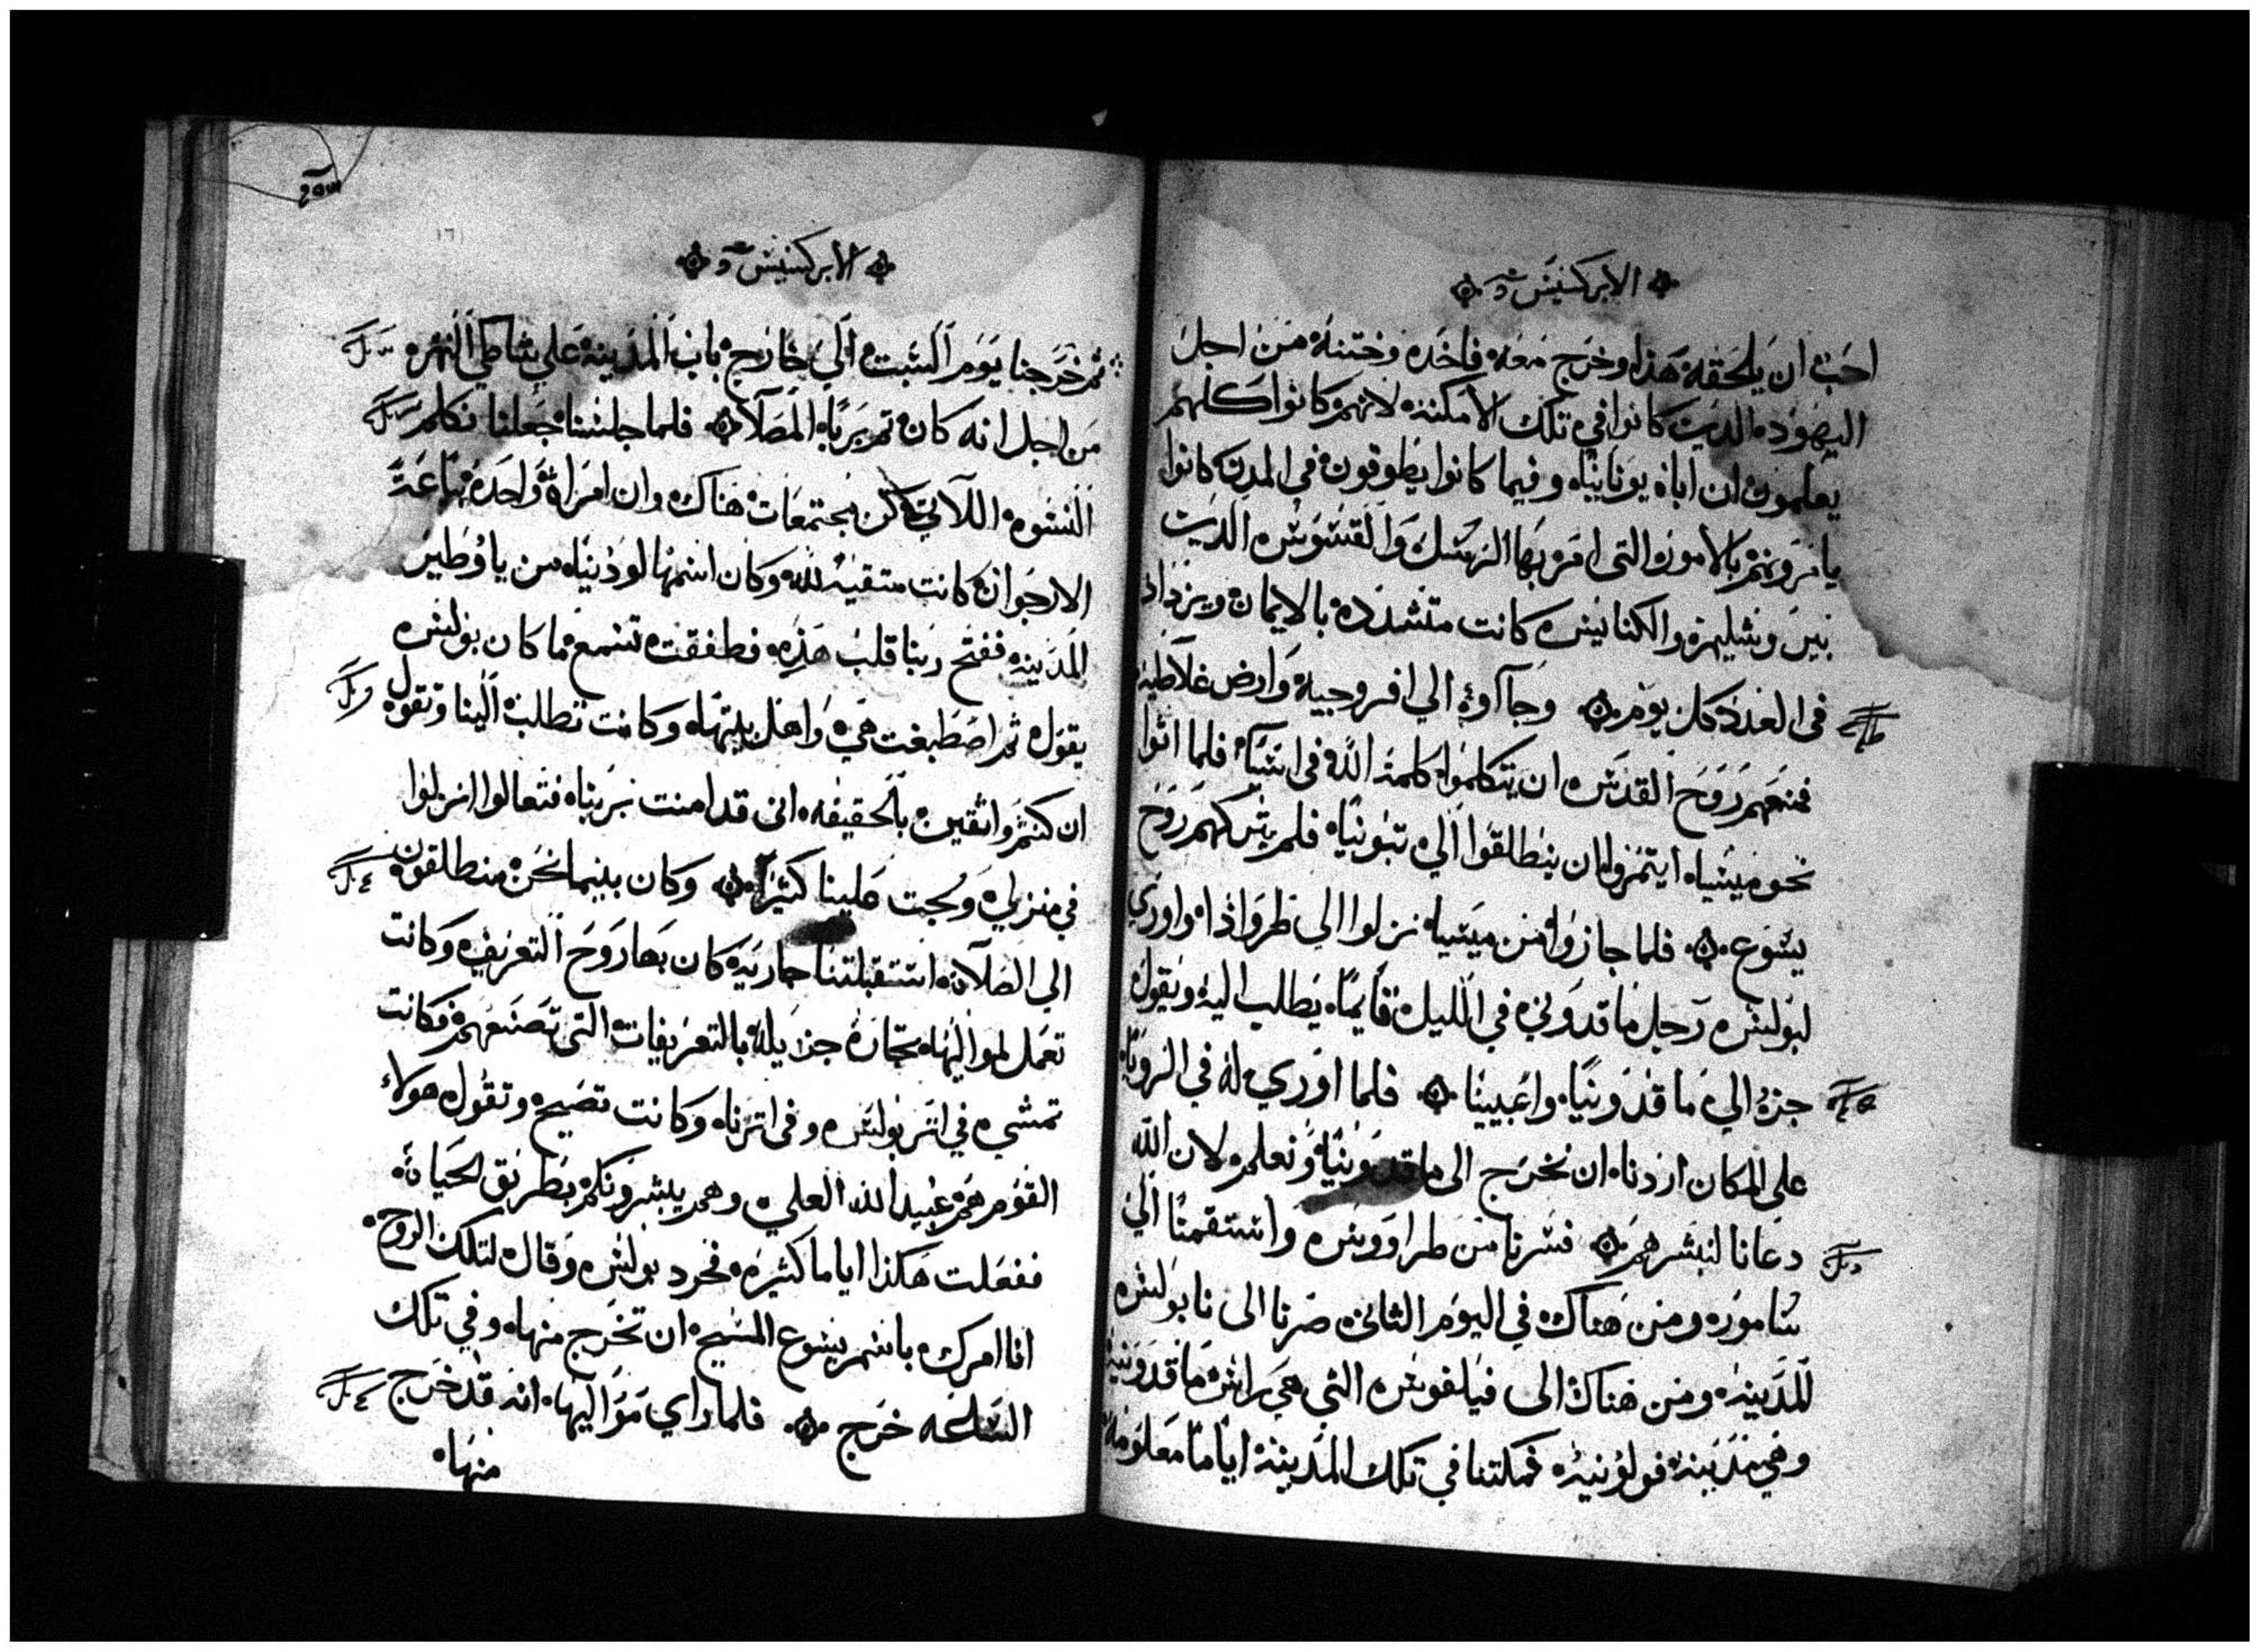 الابركسيس
احب ان يلحقه هذا وخرج معه فاخده وختنه من اجل
اليهود الديت كانوا في تلك الأمكنه لانهم كانوا كلهم
يعلمون ان اباه يونانيا وفيما كانوا يطوفون في المدن كانوا
يامرونهم بالامور التي امر بها الرسل والقسوس الديت
بيروشليم والكنايس كانت متشدده بالايمان ويزداد
في العدد كل يوم وجاآوا الي افروجيه وارض غلاطيه
فمنعهم روح القدس ان يتكلموا كلمة الله في اسيا فلما اتوا
نحو ميسيا ان ينطلقوا الي تبونيا فلم يتركهم روح
يسوع فلما جازوا من ميسيا نزلوا الي طرواذا واوري
لبولس رجل ماقدوني في الليل قايما يطلب اليه ويقول
جزء الي ماقدونيا واعيينا فلما اوري له في الرويا
علي المكان اردنا ان نخرج الى ماقدونيا ونعلم لان الله
دعانا لنبشرهم فسرنا من طراووس واستقمنا الي
ساموره ومن هناك في اليوم الثاني صرنا الى نابولس
المدينه ومن هناك الى فيلفوس التي هي راس ماقدونيه
وهي مدينه قولونيه فمكتنا في تلك المدينة اياما معلومه
الابركسيس
ثم خرجنا يوم السبت الي خارج باب المدينة علي شاطي النهر
من اجل انه كان تم يريا المصلاة فلما جلسنا جعلنا نكلم
النسوه اللآتي كن مجتمعات هناك وان امراة واحدة بياعة
الارجوان كانت متقيه لله وكان اسمها لوذيا من ياوطير
المدينه ففتح ربنا قلب هذه فطفقت تسمع ما كان بولس
يقول ثم اصطبغت هي واهل بيتها وكانت تطلب الينا وتقول
ان كنتم واثقين بالحقيقه اني قد امنت بربنا فتعالوا انزلوا
في منزلي ولجت علينا كثيرا وكان بينما نحن منطلقون
الي الصلاة استقبلتنا جاريه كان بها روح التعريف وكانت
تعمل لمواليها تجارة جزيله بالتعريفات التي تصنعهم فكانت
تمشي في اتر بولس وفي اترنا وكانت تصيح وتقول هولاء
القوم هم عبيد الله العلي وهم يبشرونكم بطريق الحياة
ففعلت هكذا اياما كثيره فحرد بولس وقال لتلك الروح
انا امرك باسم يسوع المسيح ان تخرج منها وفي تلك
الساعه خرج فلما راي مواليها انه قد خرج
منها